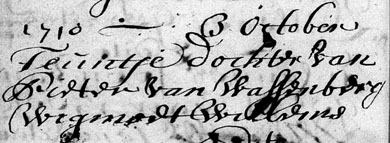 1710 — 3 October
Teuntje dochter van
Pieter van Wassenberg
Wigmoet Willems